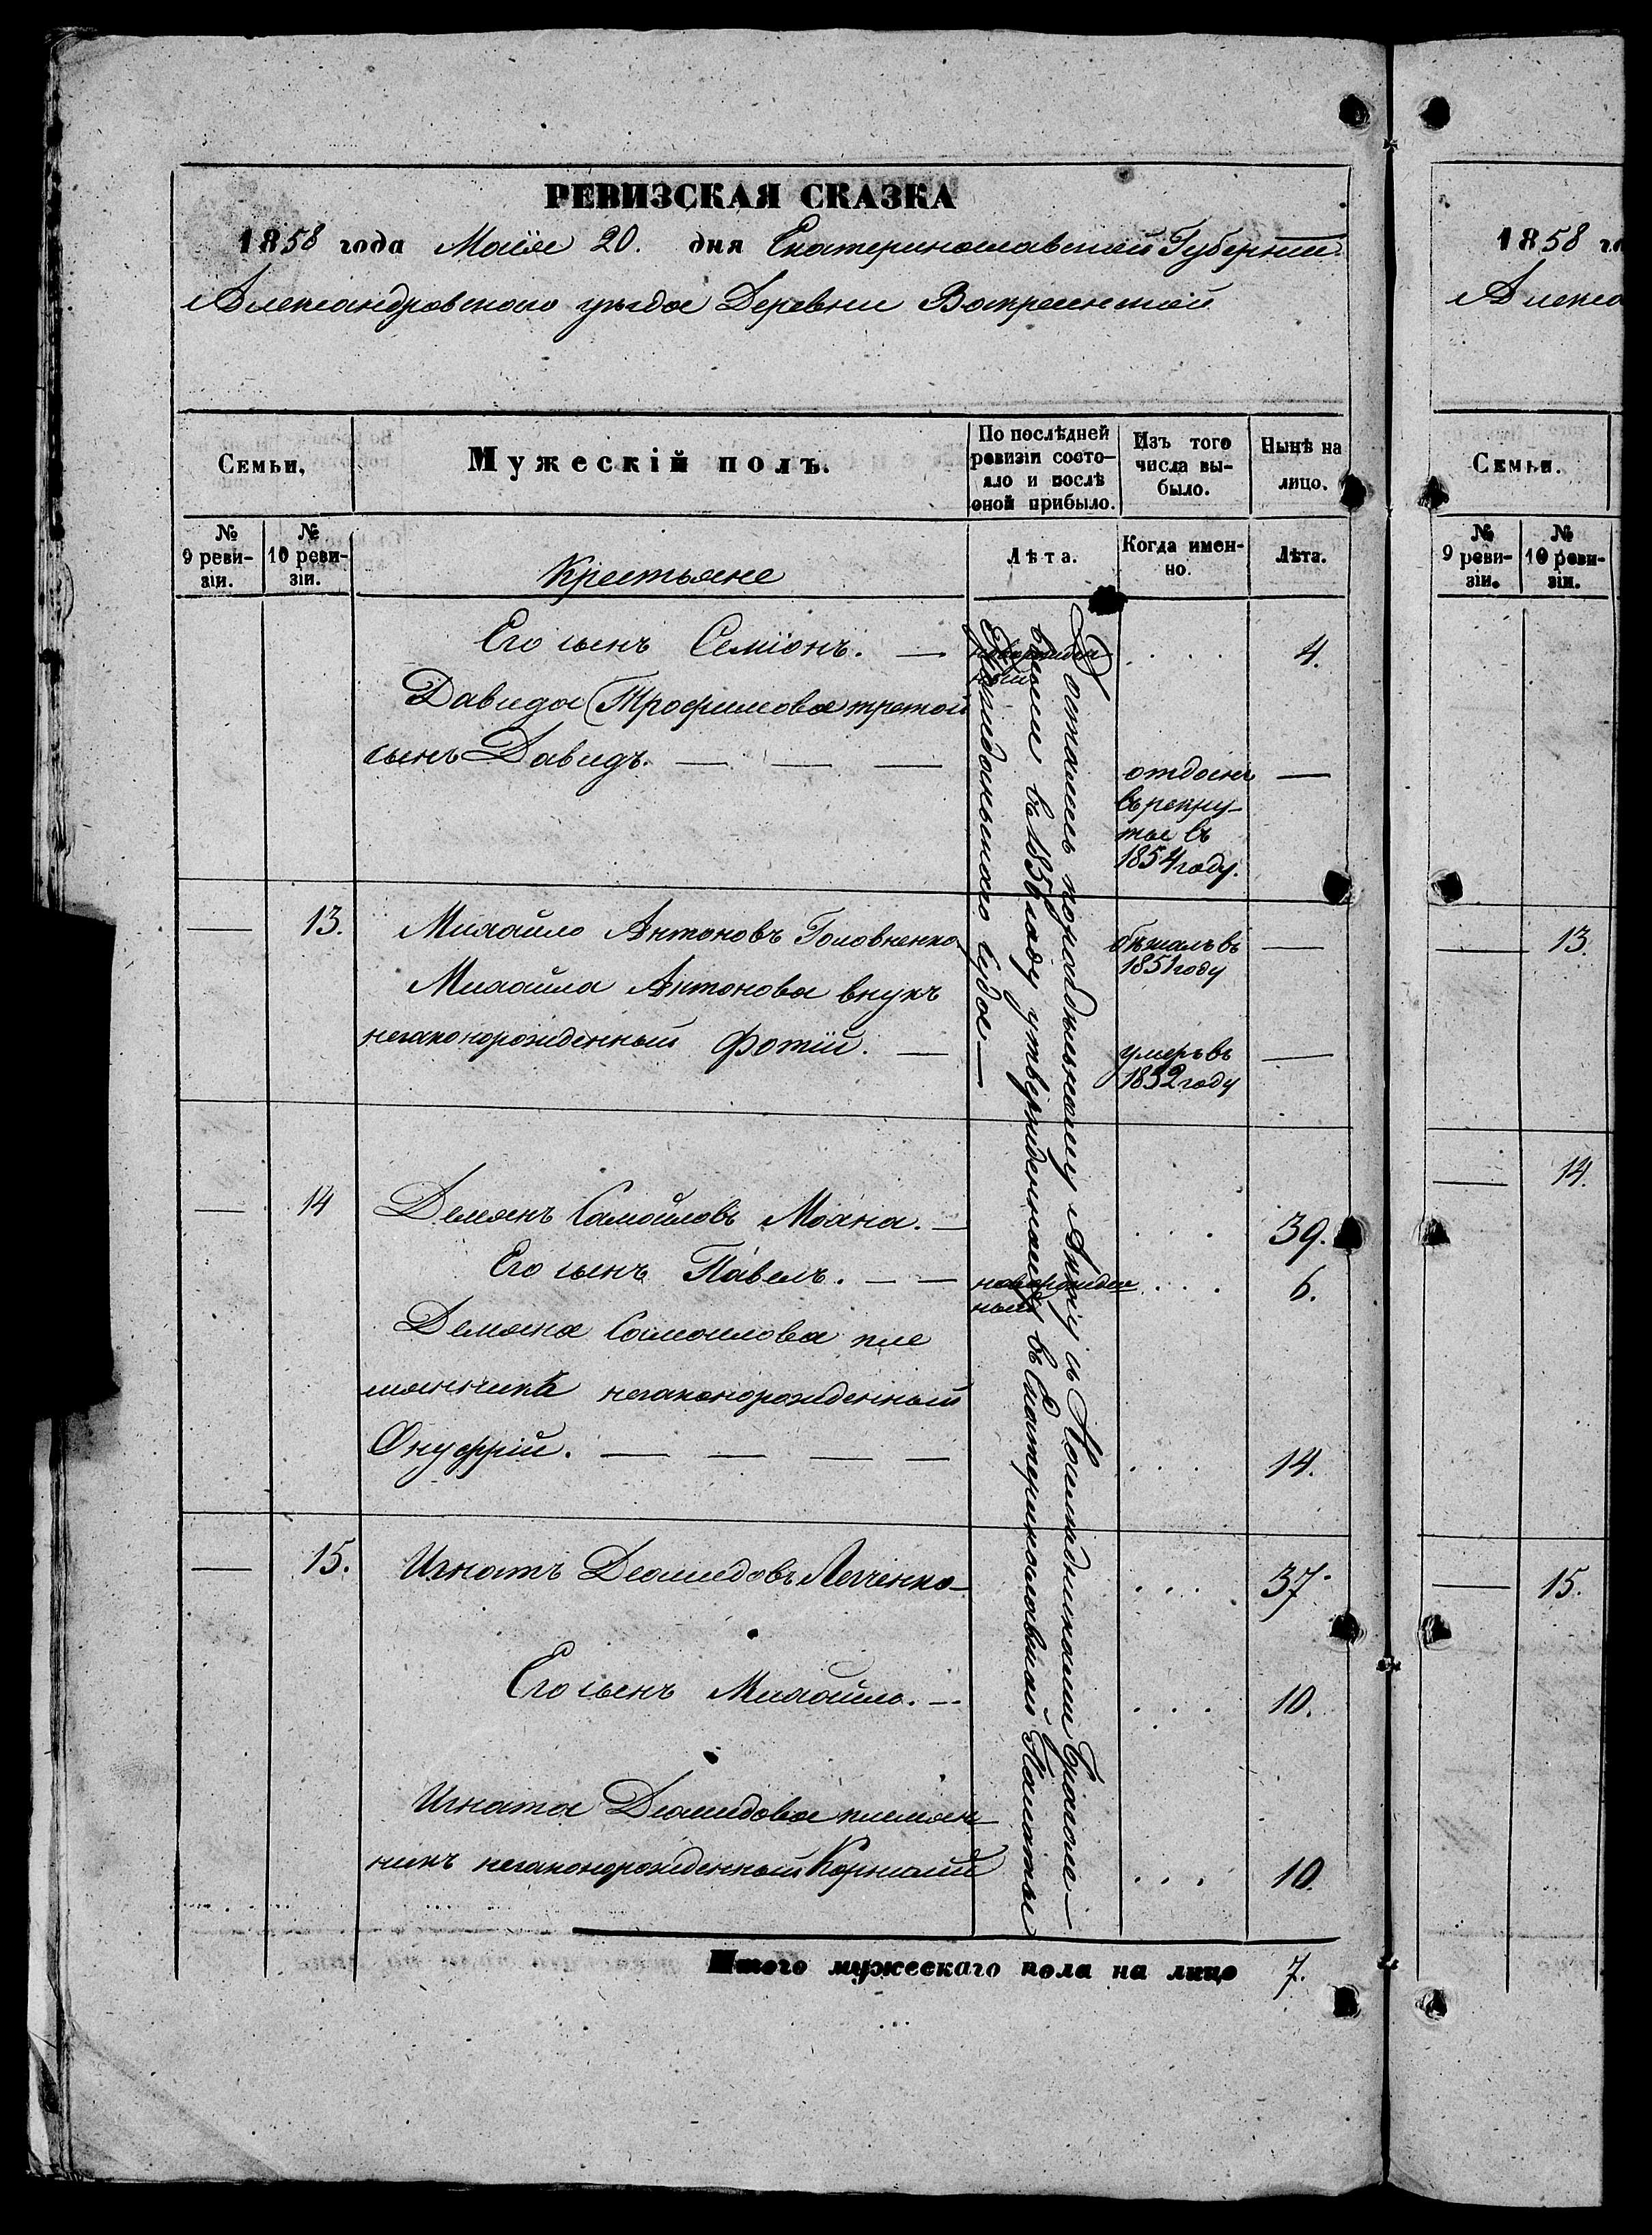 РЕВИЗСКАЯ СКАЗКА
1858 года Маія 20. дня Екатеринославской Губерніи
Александровскаго уѣзда Деревни Воскресенской
Семьи.
Мужескій полъ.
По послѣдней ревизіи состо-
яло и послѣ
оной прибыло.
Изъ того
числа вы-
было.
Нынѣ на
лицо.
№
9 реви-
зіи.
№
10 реви-
зіи.
Крестьяне
Лѣта.
Когда имен-
но.
Лѣта.
Его сынъ Семіонъ. — новорожден
ный . . . . 4.
Давида Трофимова третой
сынъ Давидъ. — — — отданъ —
въ рекру-
ты въ
1854 году.
— 13. Михайло Антоновъ Головненко бѣжалъ въ —
1851 году
Михайла Антонова внукъ
незаконорожденный Фотій. — умеръ въ —
1852 году
— 14 Демянъ Самойловъ Мохна. — . . . 39.
Его сынъ Павелъ. — — новорожден
ный . . . 6.
Демяна Самоилова пле
мянникъ незаконорожденный
Онуфрій. — — — — . . . 14.
— 15. Игнатъ Демидовъ — . . . 37.
Его сынъ Михайло. — . . . 10.
Игната Демидова племян
никъ незаконорожденный Корнилій . . . 10.
Достались по раздѣльному Акту съ
выми въ 1856 году утвержденному въ Екатеринославской Палатѣ
Гражданскаго Суда —
Итого мужескаго пола на лицо 7.
1858 го
Алекса
Семьи.
№
9 реви-
зіи.
№
10 реви-
зіи.
— 13.
— 14.
— 15.